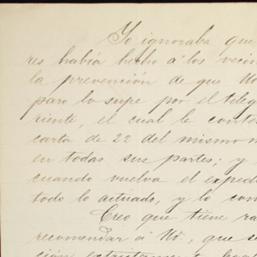 Yo ignoraba que
res habia hecho á los vein
la prevención de que Uo
paro lo supe por el teleg
riente, el cual le contes
carta de 22 del mismo m
en todas sus partes; y
cuando vuelva el expedi
todo lo actuado, y lo con
Creo que tiene ra
recomendar á Uo, que se